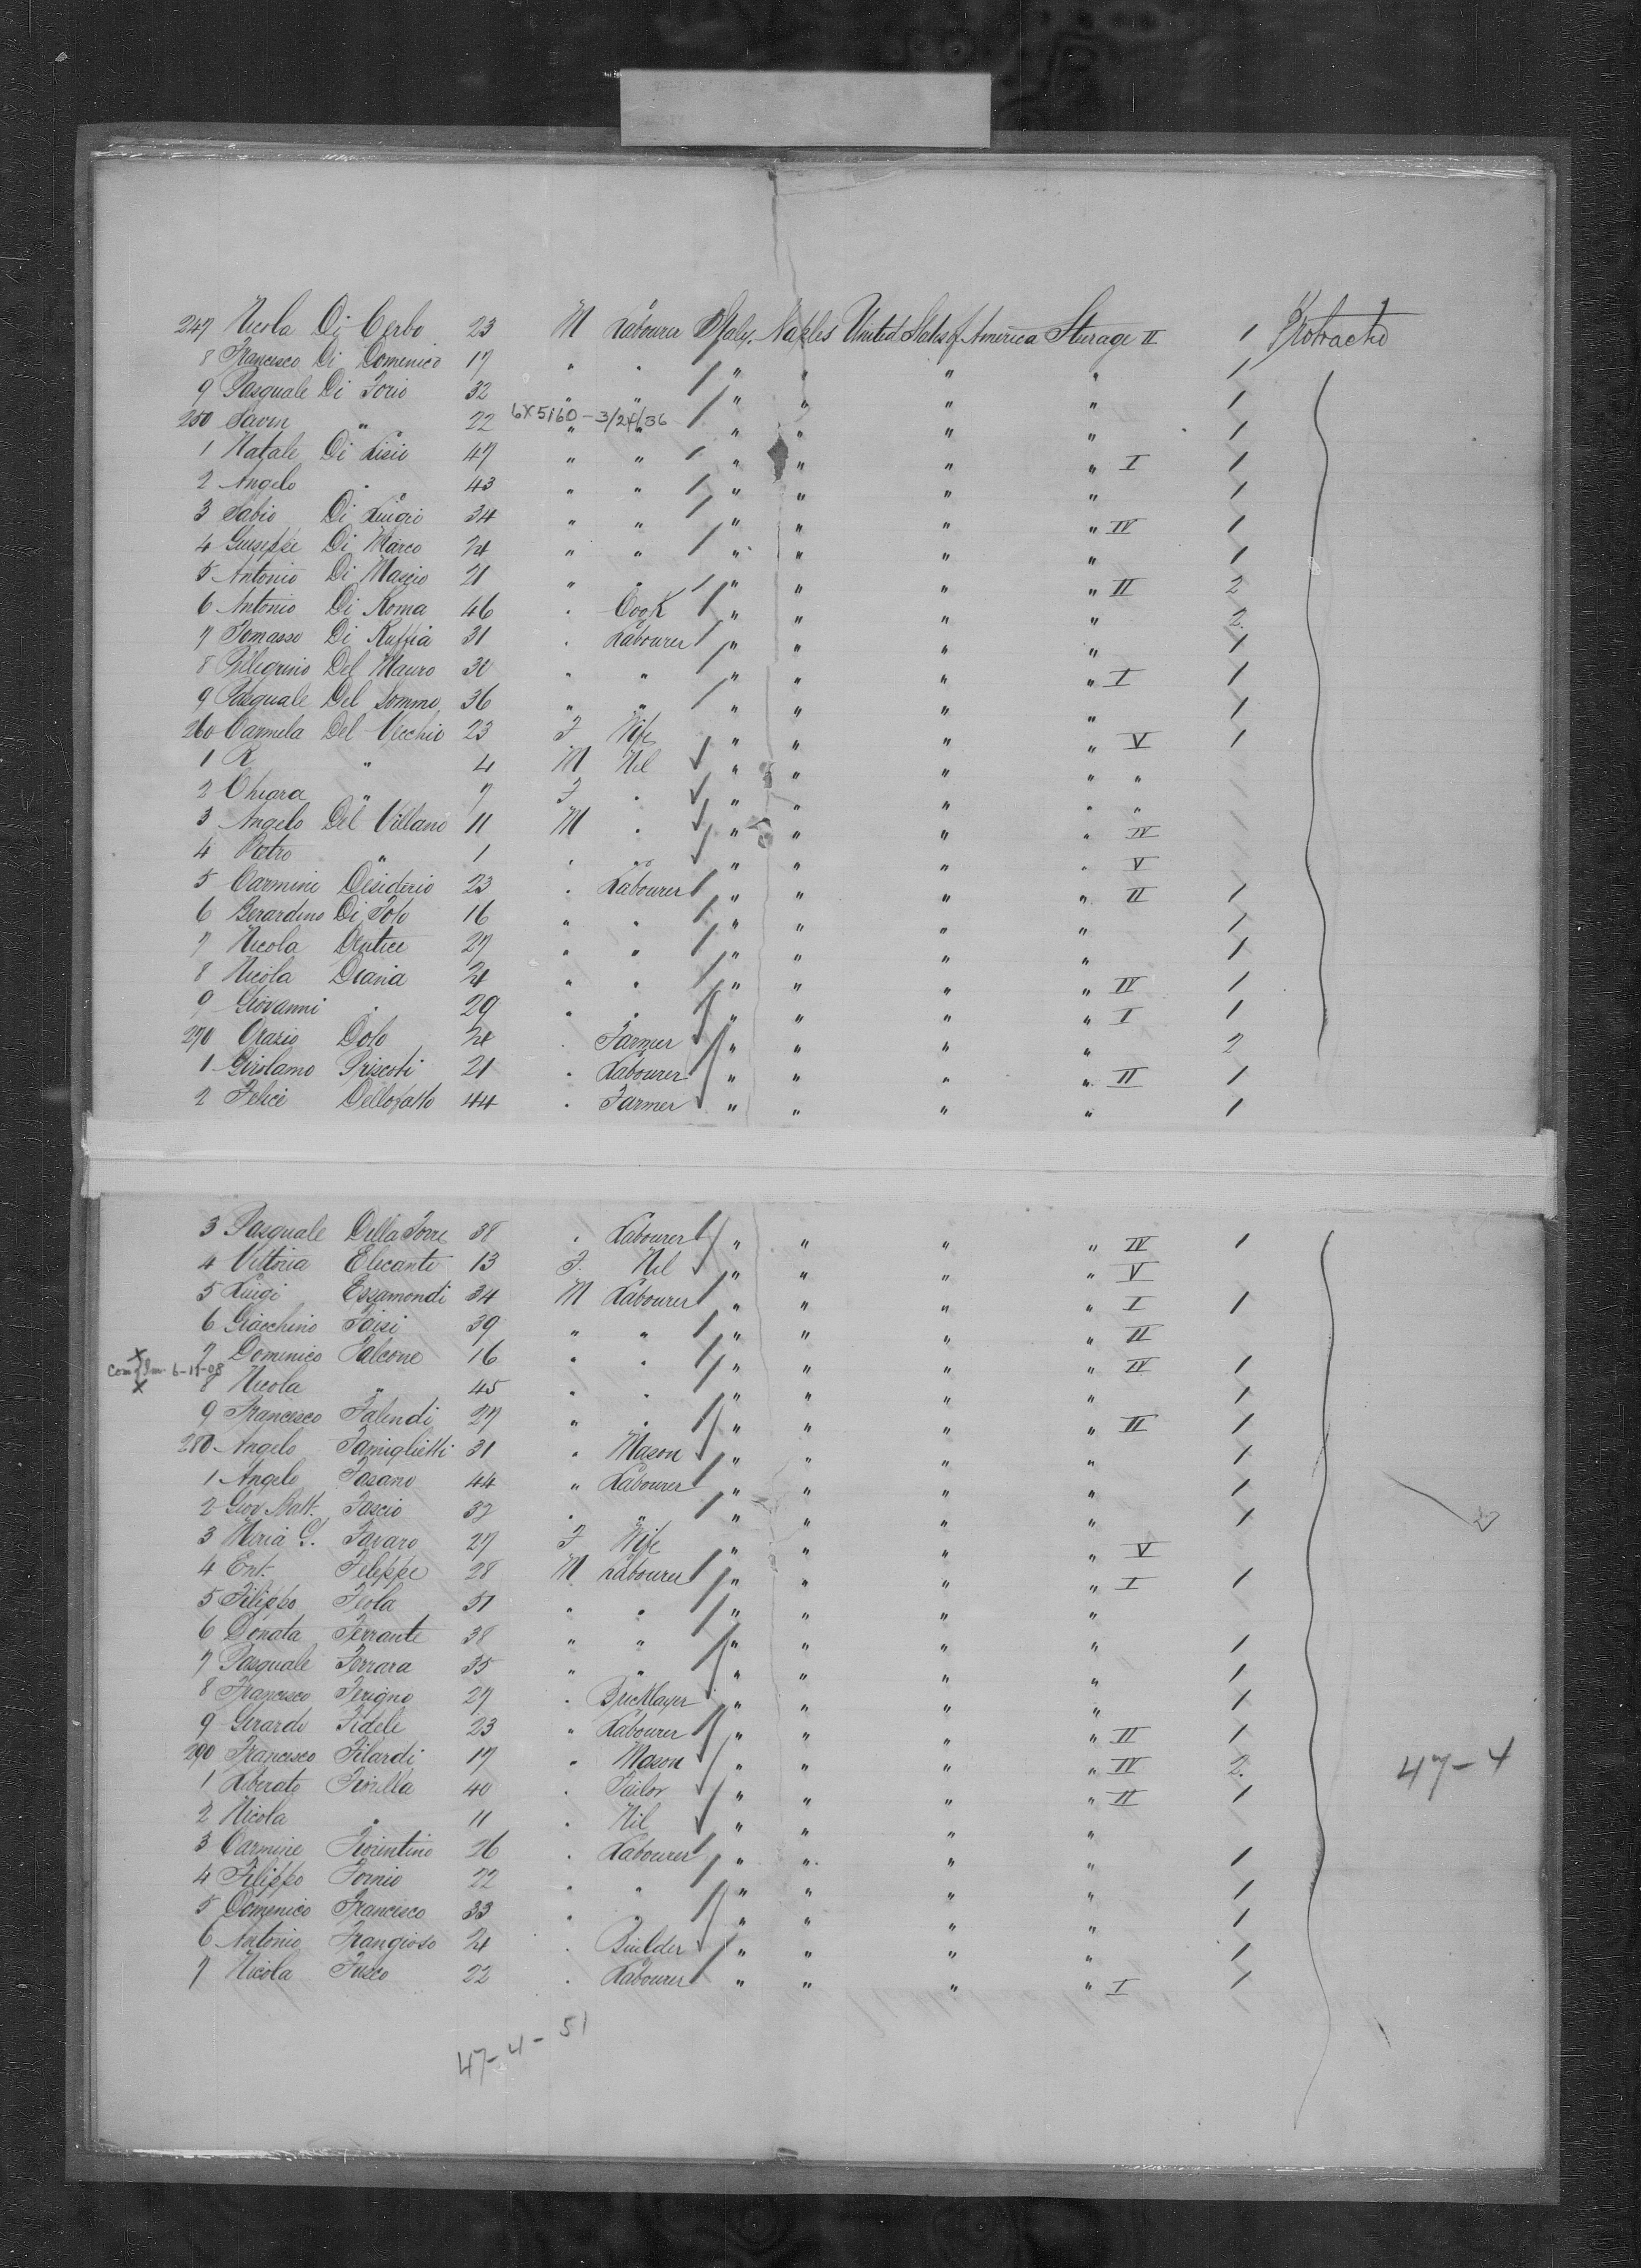 247 Nicola Di Cerbo 23 M Labourer Italy. Naples United States of America Sterage II 1 Protracted
8 Francesco Di Domenico 17 " " " " " " 1
9 Pasquale Di Iorio 32 " " " " " " 1
250 Savin " 22 6X5160-3/24/36 " " " " " " 1
1 Natale Di Lisio 47 " " " " " " I 1
2 Angelo " 43 " " " " " " 1
3 Fabio Di Luigri 34 " " " " " " IV 1
4 Guiseppe Di Marco 24 " " " " " " 1
5 Antonio Di Mascio 21 " " " " " " II 2
6 Antonio Di Roma 46 " Cook " " " " 2.
7 Tomasso Di Ruffia 31 " Labourer " " " " 1
8 Pellegrino Del Mauro 30 " " " " " " I 1
9 Pasquale Del Sommo 36 " " " " " " 1
260 Carmela Del Vecchio 23 F Wife " " " " V 1
1 R " 4 M Nil " " " " "
2 Chiara " 7 F " " " " " "
3 Angelo Del Villano 11 M " " " " " IV
4 Pietro " 1 " " " " " " V
5 Carmine Desiderio 23 " Labourer " " " " II 1
6 Berardino Di Tolo 16 " " " " " " 1
7 Nicola Dentice 27 " " " " " " 1
8 Nicola Diana 24 " " " " " " IV 1
9 Giovanni " 29 " " " " " " I 1
270 Orazio Dolo 24 " Farmer " " " " 2
1 Girolamo Priscoti 21 " Labourer " " " " II 1
2 Felice 44 " Farmer " " " " 1
3 Pasquale Della Torre 38 " Labourer " " " " IV 1
4 Vittoria Elecante 13 F. Nil " " " " V
5 Luigi Essamondi 34 M Labourer " " " " I 1
6 Giacchino Faisi 39 " " " " " " II
7 Domenico Falcone 16 " " " " " " IV 1
X Com of Im. 6-11-08 X
8 Nicola " 45 " " " " " " 1
9 Francesco Falendi 27 " " " " " " II 1
280 Angelo Famiglietti 31 " Mason " " " " 1
1 Angelo Fasano 44 " Labourer " " " " 1
2 Giov Batt. Fascio 32 " " " " " " 1
3 Maria G. Favaro 27 F Wife " " " " V
4 Ent. Fileppe 28 M Labourer " " " " I 1
5 Filippo Feola 51 " " " " " "
6 Donata Ferrante 38 " " " " " " 1
7 Pasquale Ferrara 35 " " " " " " 1
8 Francesco Ferigno 27 " Bricklayer " " " " 1
9 Gerardo Fidele 23 " Labourer " " " " II 1
290 Francesco Filardi 17 " Mason " " " " IV 2.
47-4
1 Liberato Fiorilla 40 " Tailor " " " " II 1
2 Nicola " 11 " Nil " " " "
3 Carmine Fiorentino 26 " Labourer " " " " 1
4 Filippo Fornio 22 " " " " " " 1
5 Domenico Francesco 33 " " " " " " 1
6 Antonio Frangioso 24 " Builder " " " " 1
7 Nicola Fusco 22 " Labourer " " " " I 1
47-4-51